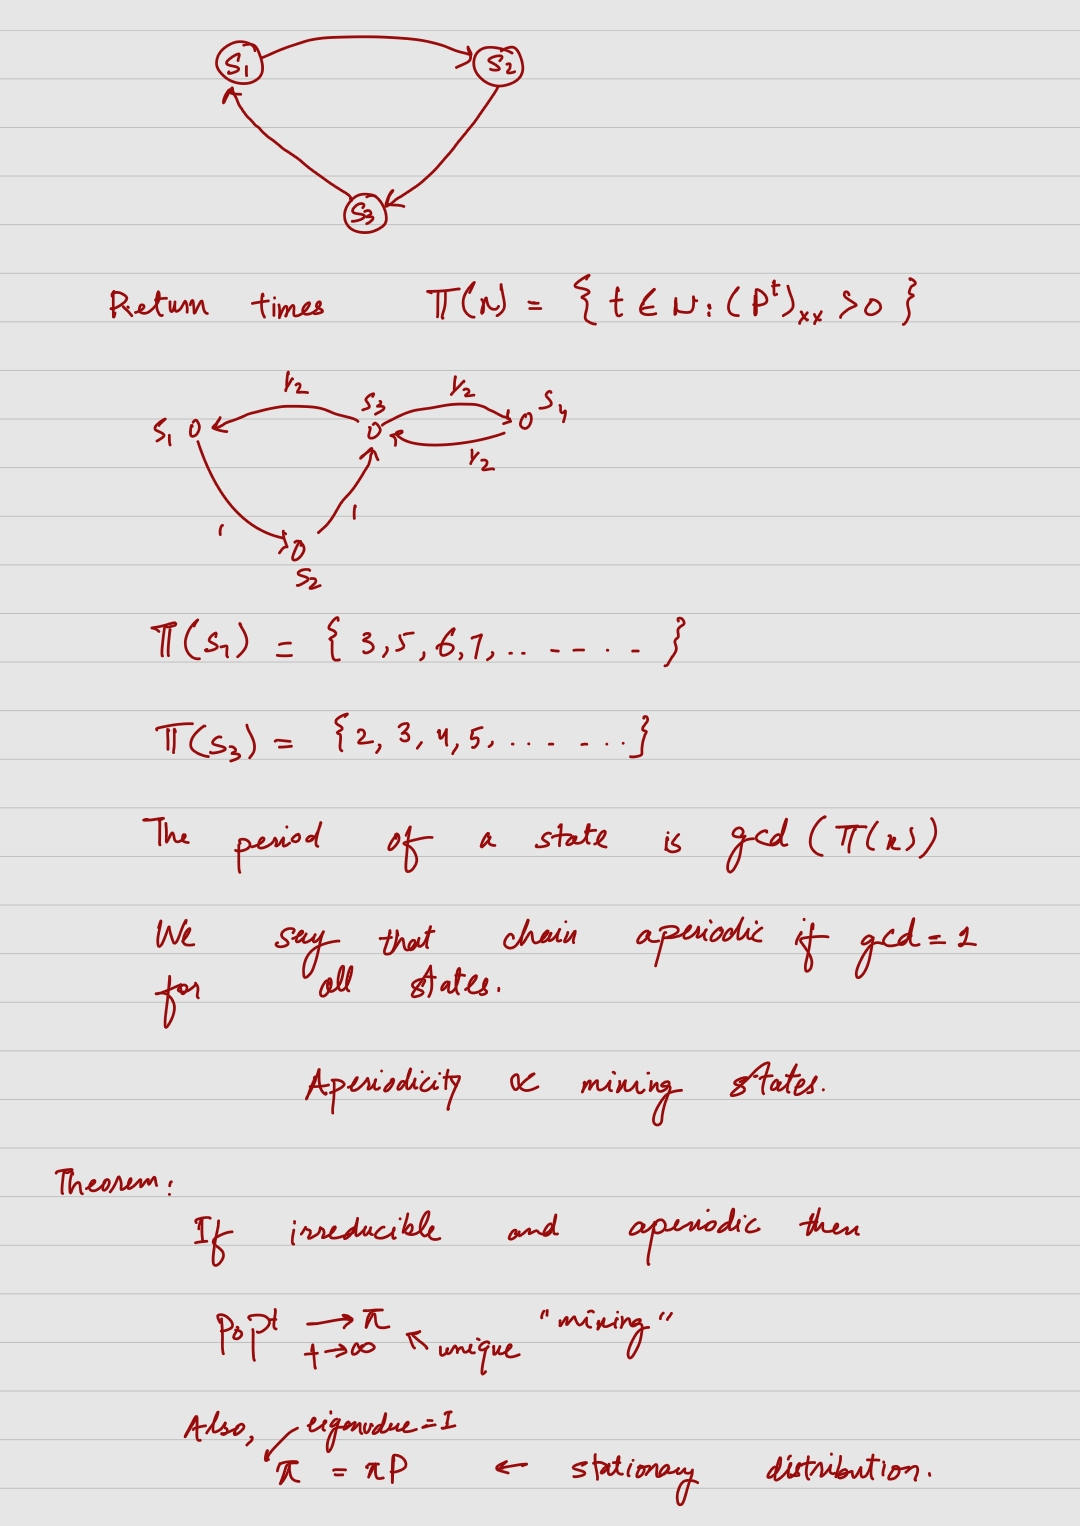 S1 S2
S3
Return times Π(x) = { t ∈ N : (P^t)_xx > 0 }
1/2 S3 1/2 S4
S1
1/2
1 1
S2
Π(S1) = { 3, 5, 6, 7, .. - -- · · - }
Π(S3) = { 2, 3, 4, 5, . ... - - ... }
The period of a state is gcd (Π(x))
We say that chain aperiodic if gcd = 1
for all states.
Aperiodicity ∝ mixing states.
Theorem:
If irreducible and aperiodic then
P₀P^t → π "mixing"
t→∞ ↖ unique
Also, eigenvalue = 1
π = πP ← stationary distribution.